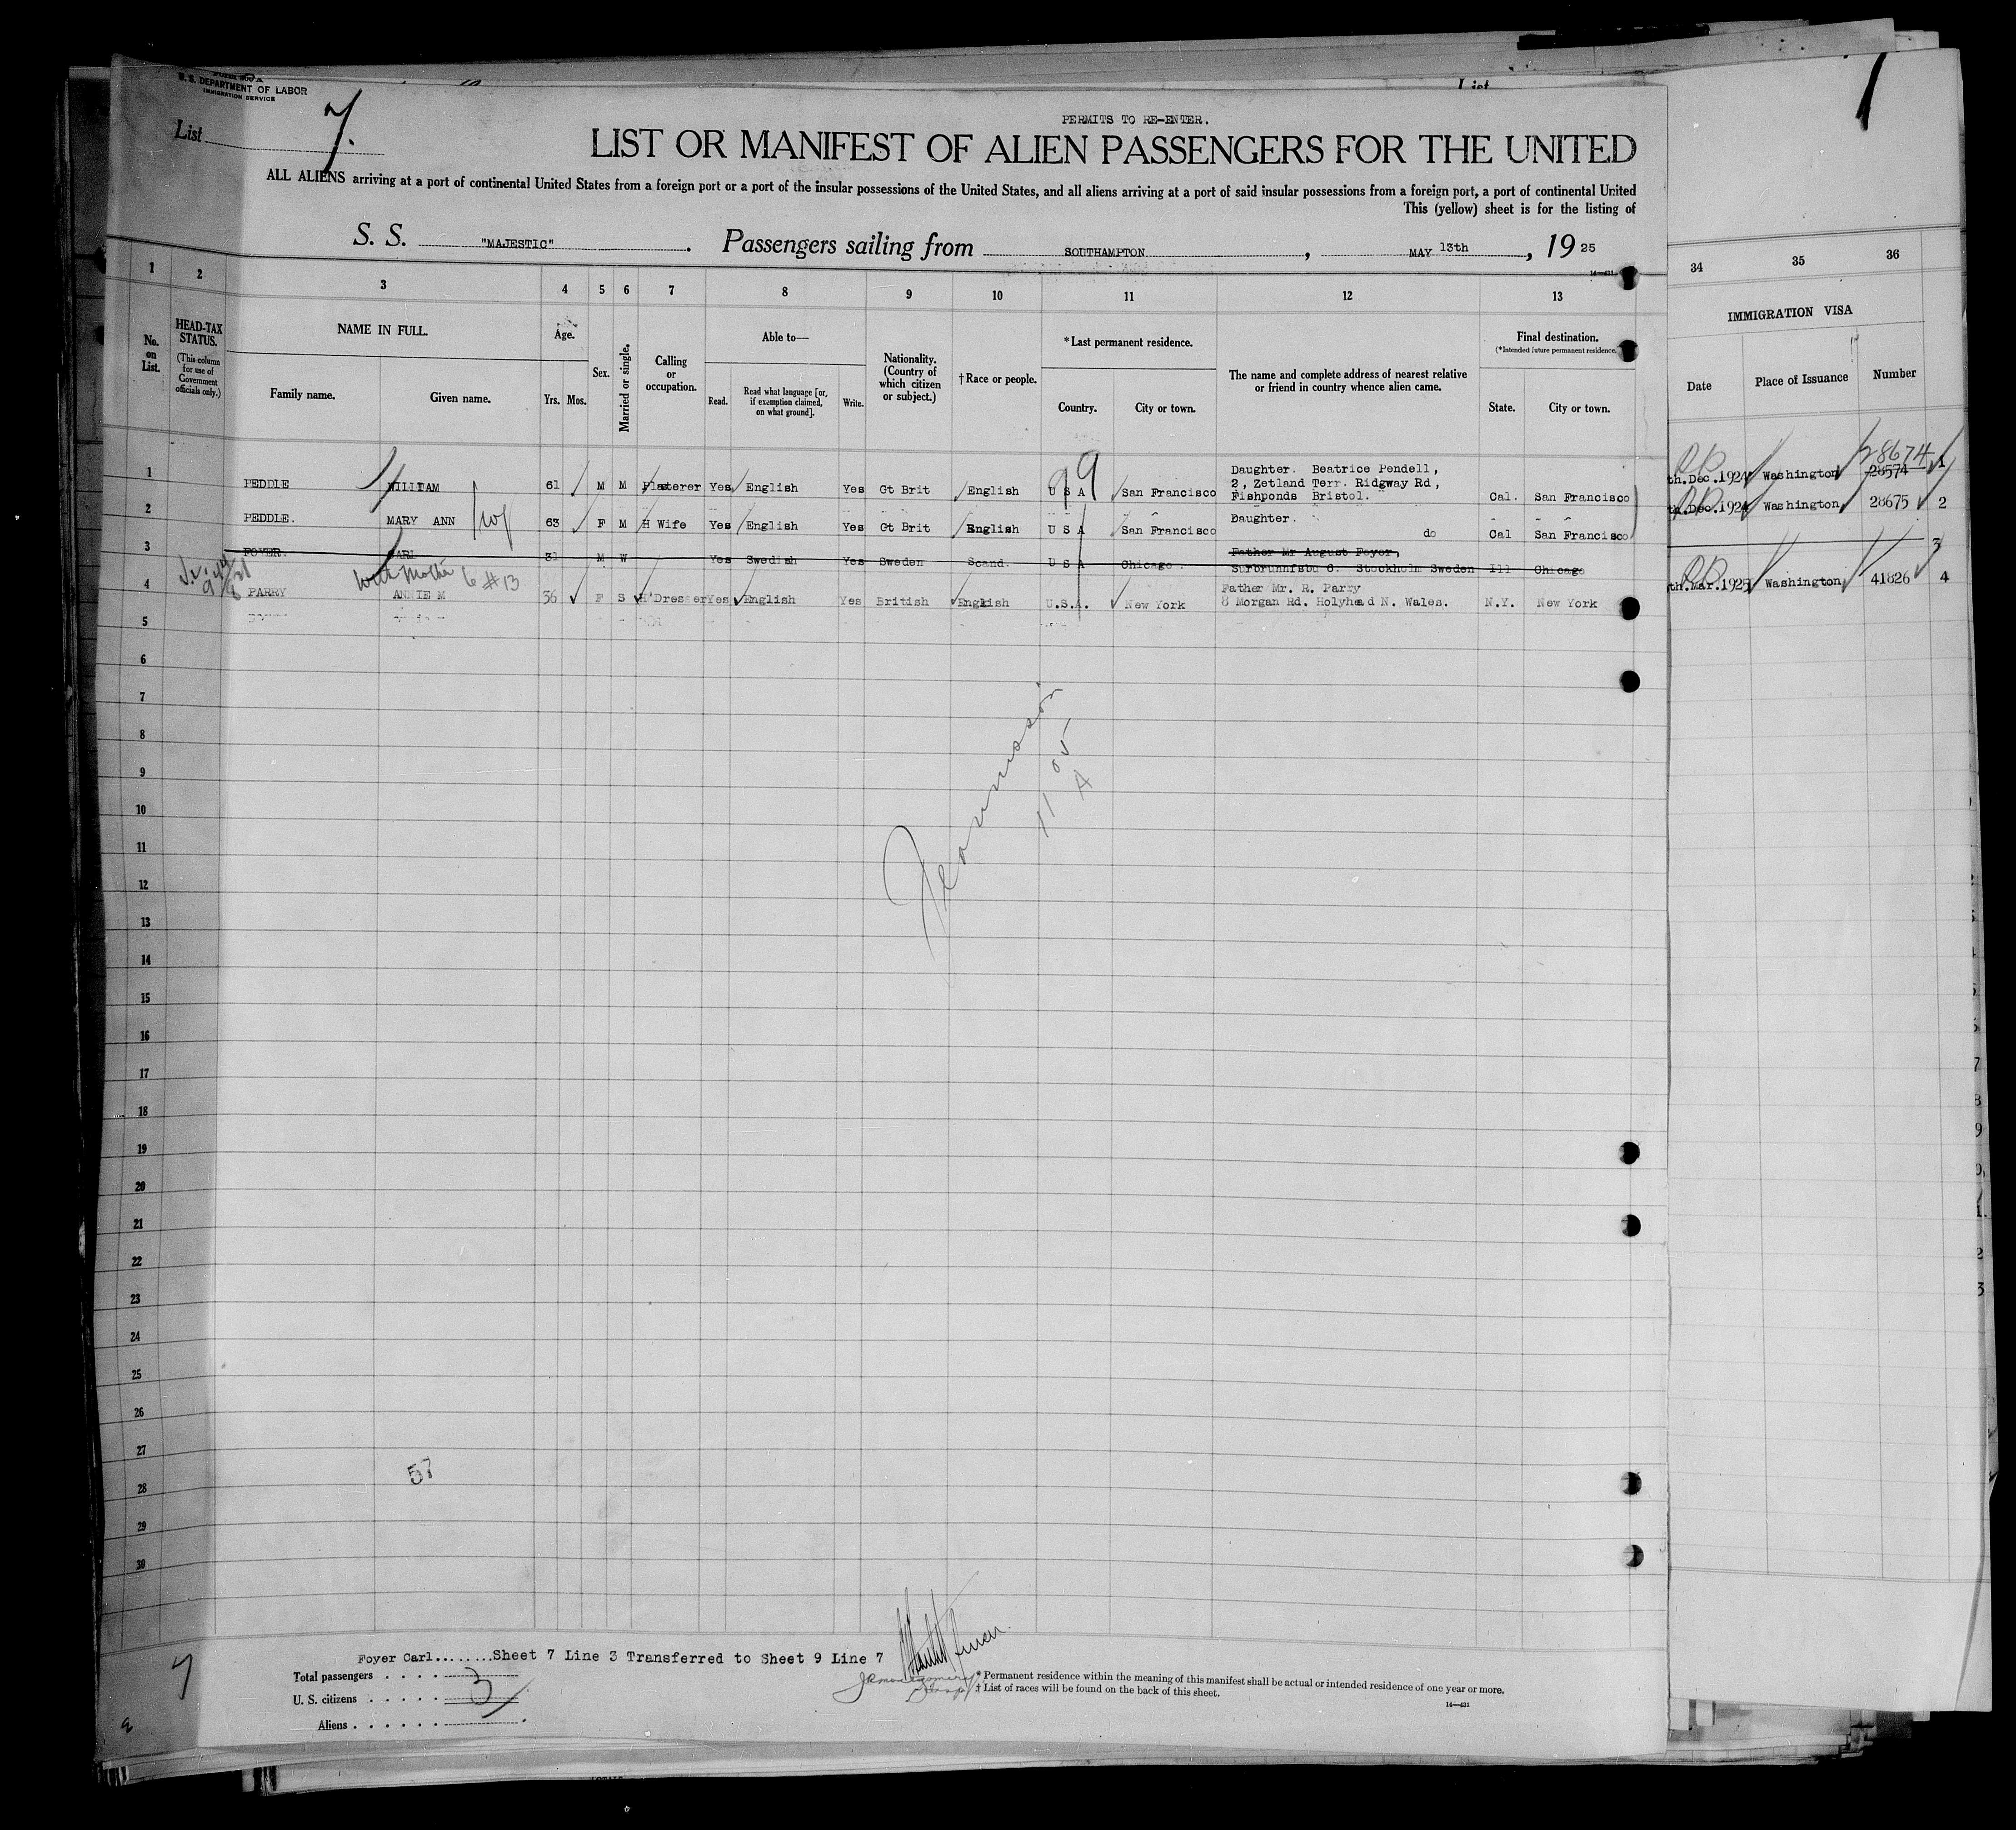 U. S. DEPARTMENT OF LABOR
IMMIGRATION SERVICE
List 7.
PERMITS TO RE-ENTER.
LIST OR MANIFEST OF ALIEN PASSENGERS FOR THE UNITED
ALL ALIENS arriving at a port of continental United States from a foreign port or a port of the insular possessions of the United States, and all aliens arriving at a port of said insular possessions from a foreign port, a port of continental United
This (yellow) sheet is for the listing of
S. S. "MAJESTIC". Passengers sailing from SOUTHAMPTON, MAY 13th, 19 25
1 2 3 4 5 6 7 8 9 10 11 12 13 34 35 36
No. on List.
HEAD-TAX STATUS.
(This column for use of Government officials only.)
NAME IN FULL.
Family name. Given name.
Age.
Yrs. Mos.
Sex.
Married or single.
Calling or occupation.
Able to—
Read. Read what language [or, if exemption claimed, on what ground]. Write.
Nationality. (Country of which citizen or subject.)
† Race or people.
*Last permanent residence.
Country. City or town.
The name and complete address of nearest relative or friend in country whence alien came.
Final destination.
(*Intended future permanent residence.)
State. City or town.
IMMIGRATION VISA
Date Place of Issuance Number
1 PEDDLE WILLIAM 61 M M Plasterer Yes English Yes Gt Brit English U S A San Francisco Daughter. Beatrice Pendell, 2, Zetland Terr. Ridgway Rd, Fishponds Bristol. Cal. San Francisco th.Dec.1924 Washington 28574 28674 1
2 PEDDLE. MARY ANN 63 F M H Wife Yes English Yes Gt Brit English U S A San Francisco Daughter. do Cal San Francisco th.Dec.1924 Washington 28675 2
3 FOYER. CARL 31 M W Yes Swedish Yes Sweden Scand. U S A Chicago. Father Mr August Foyer, Stockholm Sweden Ill Chicago 3
With Mother 6 #13
4 PARRY ANNIE M 36 F S H'Dresser Yes English Yes British English U.S.A. New York Father Mr. R. Parry 8 Morgan Rd. Holyhead N. Wales. N.Y. New York th.Mar.1925 Washington 41826 4
5
6
7
8
9
10
11
12
13
14
15
16
17
18
19
20
21
22
23
24
25
26
27
57
28
29
30
Foyer Carl........Sheet 7 Line 3 Transferred to Sheet 9 Line 7
Total passengers . . . .
U. S. citizens . . . . . 3
Aliens . . . . . .
* Permanent residence within the meaning of this manifest shall be actual or intended residence of one year or more.
† List of races will be found on the back of this sheet.
14—431
7